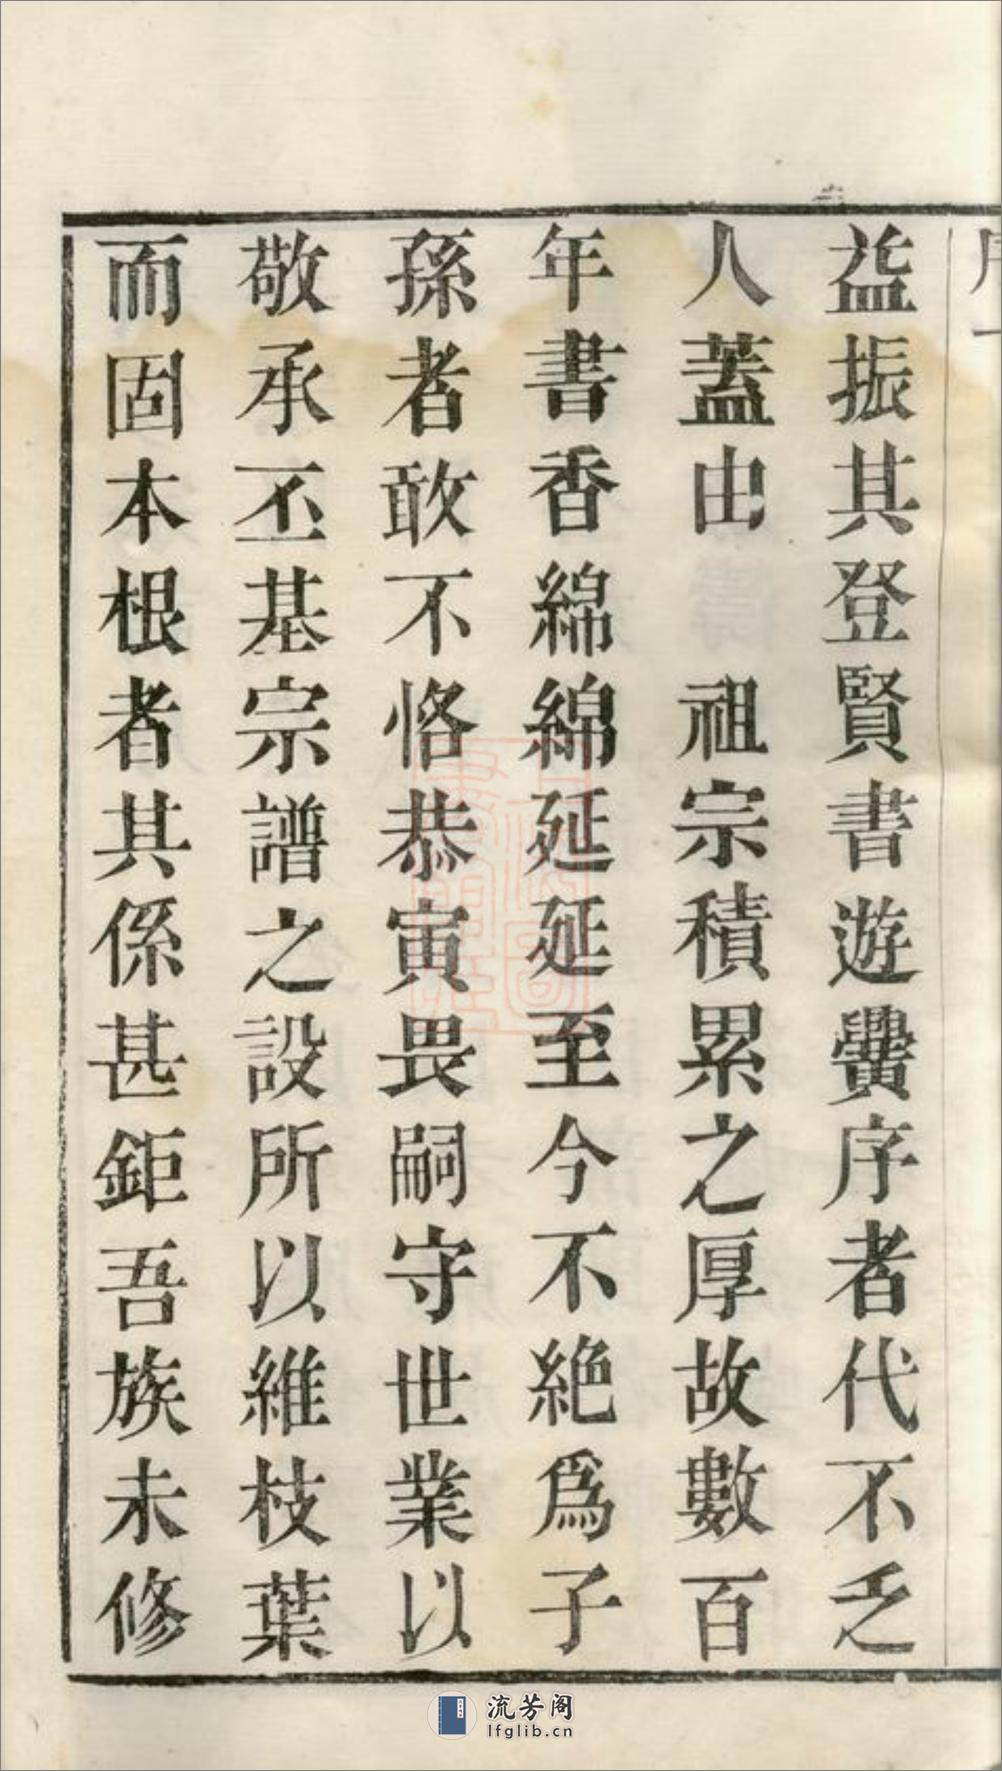 益振其登賢書遊黌序者代不乏
人蓋由　祖宗積累之厚故數百
年書香綿綿延延至今不絕爲子
孫者敢不恪恭寅畏嗣守世業以
敬承丕基宗譜之設所以維枝葉
而固本根者其係甚鉅吾族未修
流芳阁
lfglib.cn